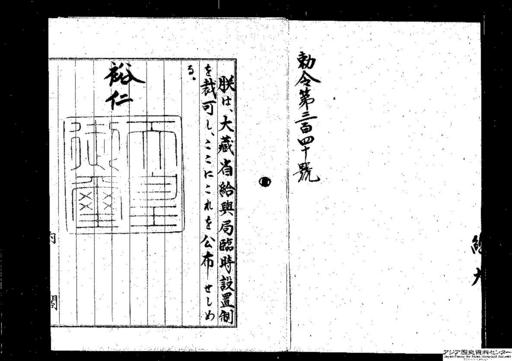 勅令第三百四十號
朕は、大藏省給與局臨時設置制
を裁可し、ここにこれを公布せしめ
る。
裕仁
天皇御璽
内閣
アジア歴史資料センター